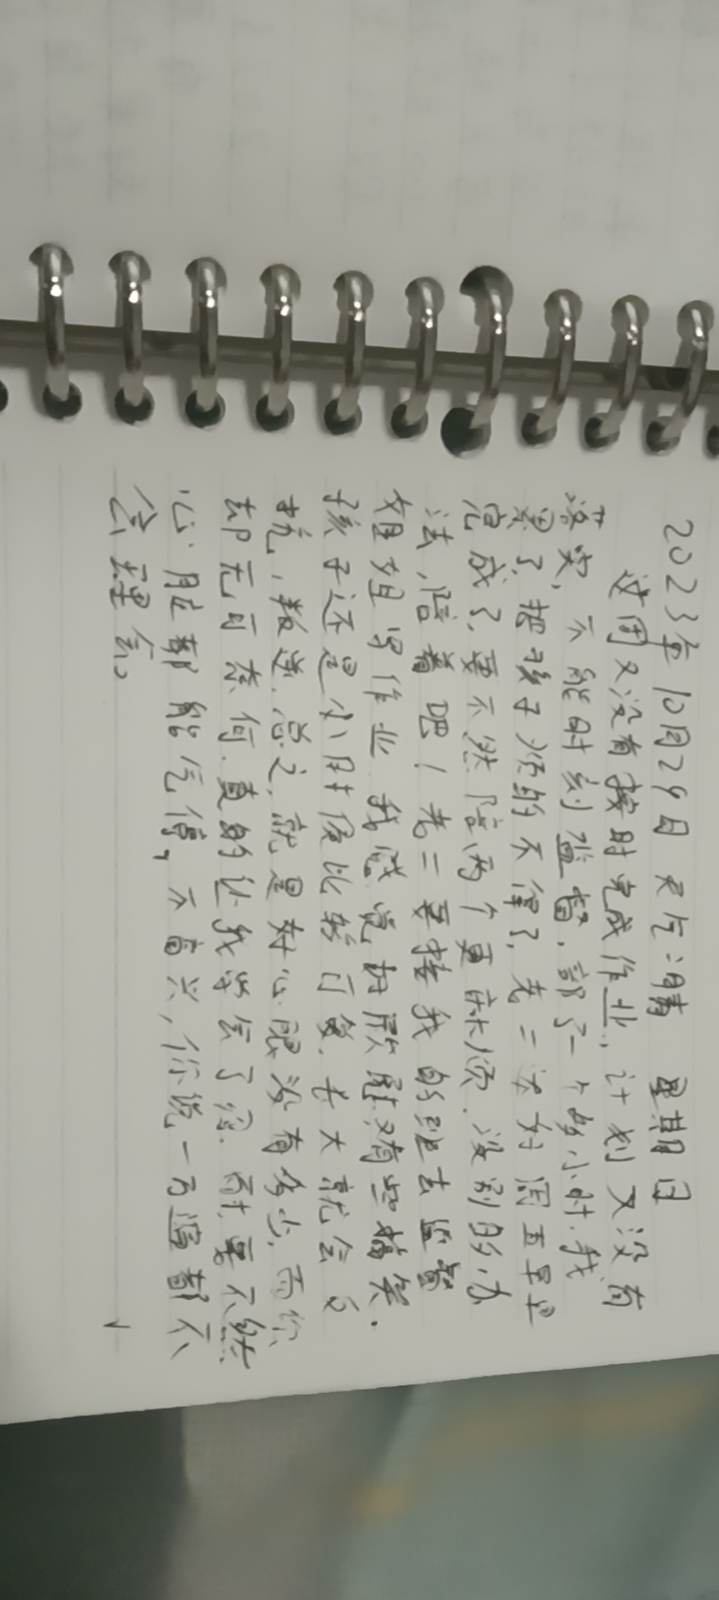 2023年10月29日 天气:晴 星期日
这周又没有按时完成作业,计划又没有
落实,不能时刻监督,部了一个多小时.我
累了.把孩子烦的不得了,老二还好周五早早
完成了.要不然陪两个更麻烦.没别的办
法,陪着吧!老二要接我的班去监督
姐姐写作业.我感觉好欣慰又有些搞笑.
孩子还是小时候比较可爱.长大就会反
抗,叛逆.总之,就是好心眼没有多少,而你
却无可奈何.真的让我学会了忍耐,要不然
心脏都能气停,不高兴,你说一百遍都不
会理会。